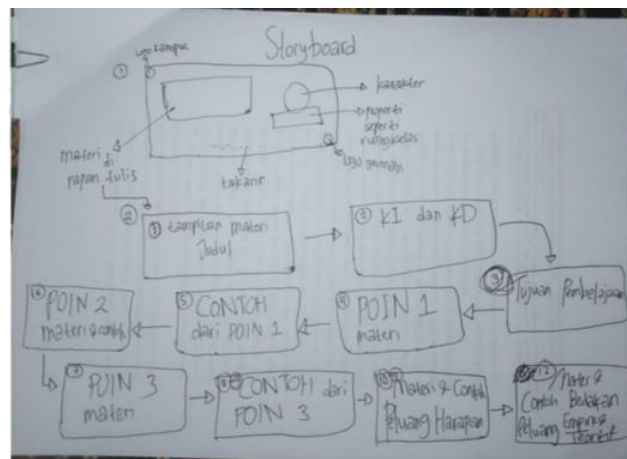 Storyboard
logo kampus
①
karakter
properti
seperti
ruang kelas
logo animasi
materi
di
papan tulis
takarir
②
① tampilan materi
Judul
② KI dan KD
③ Tujuan Pembelajaran
④ POIN 1
materi
⑤ CONTOH
dari POIN 1
⑥ POIN 2
materi & contoh
⑦ POIN 3
materi
CONTOH dari
POIN 3
Materi & Contoh
Peluang Harapan
12 Materi &
Contoh Bedakan
Peluang Empirik &
Teoritik